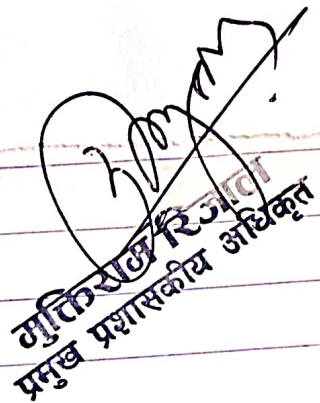 मुक्तिराम रिजाल
प्रमुख प्रशासकीय अधिकृत